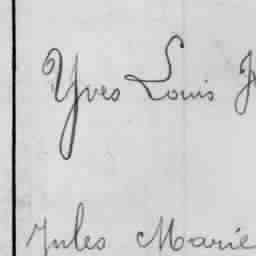 Yves Louis
Jules Marie